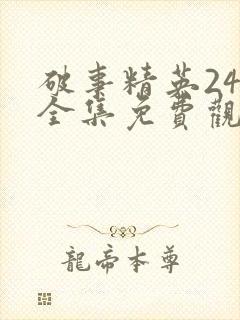 破事精英24
全集免費觀
龍帝本尊